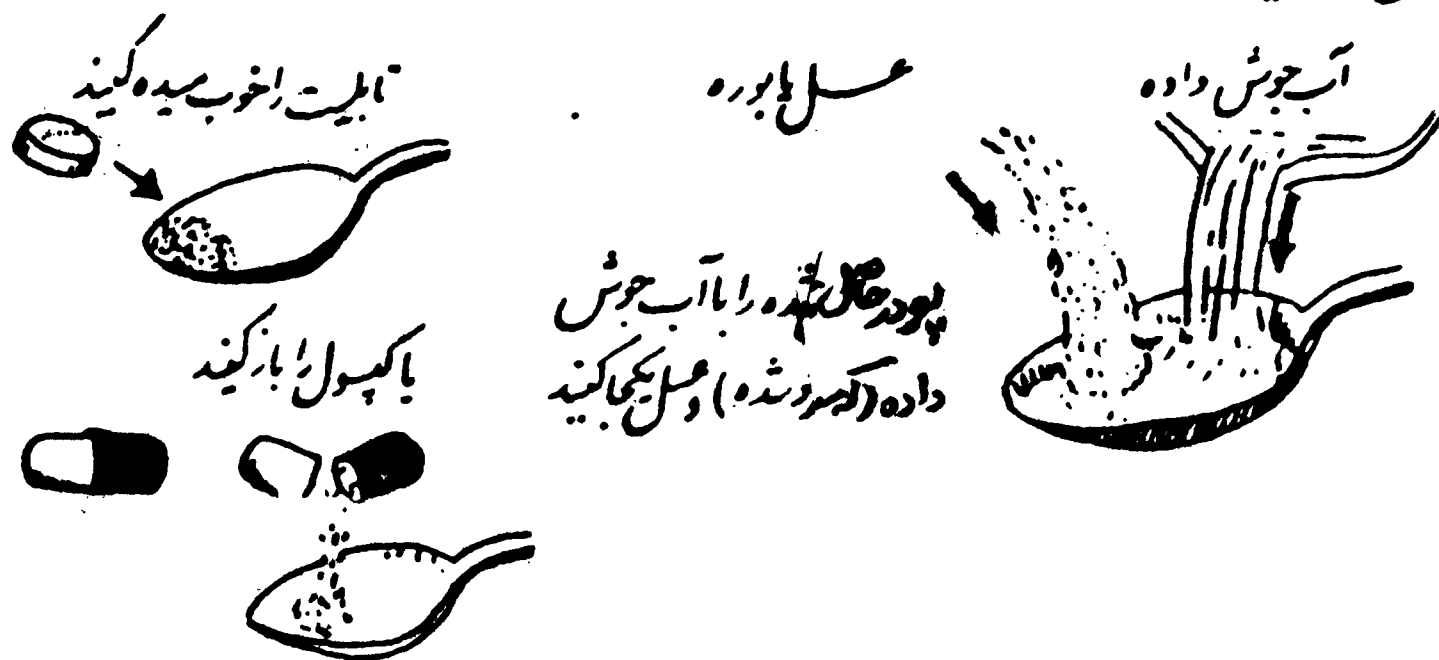 آب جوش داده
عسل یا بوره
تابلیت را خوب میده کنید
پودر حاصل شده را با آب جوش
داده (که سرد شده) و عسل یکجا کنید
یا کپسول را باز کنید